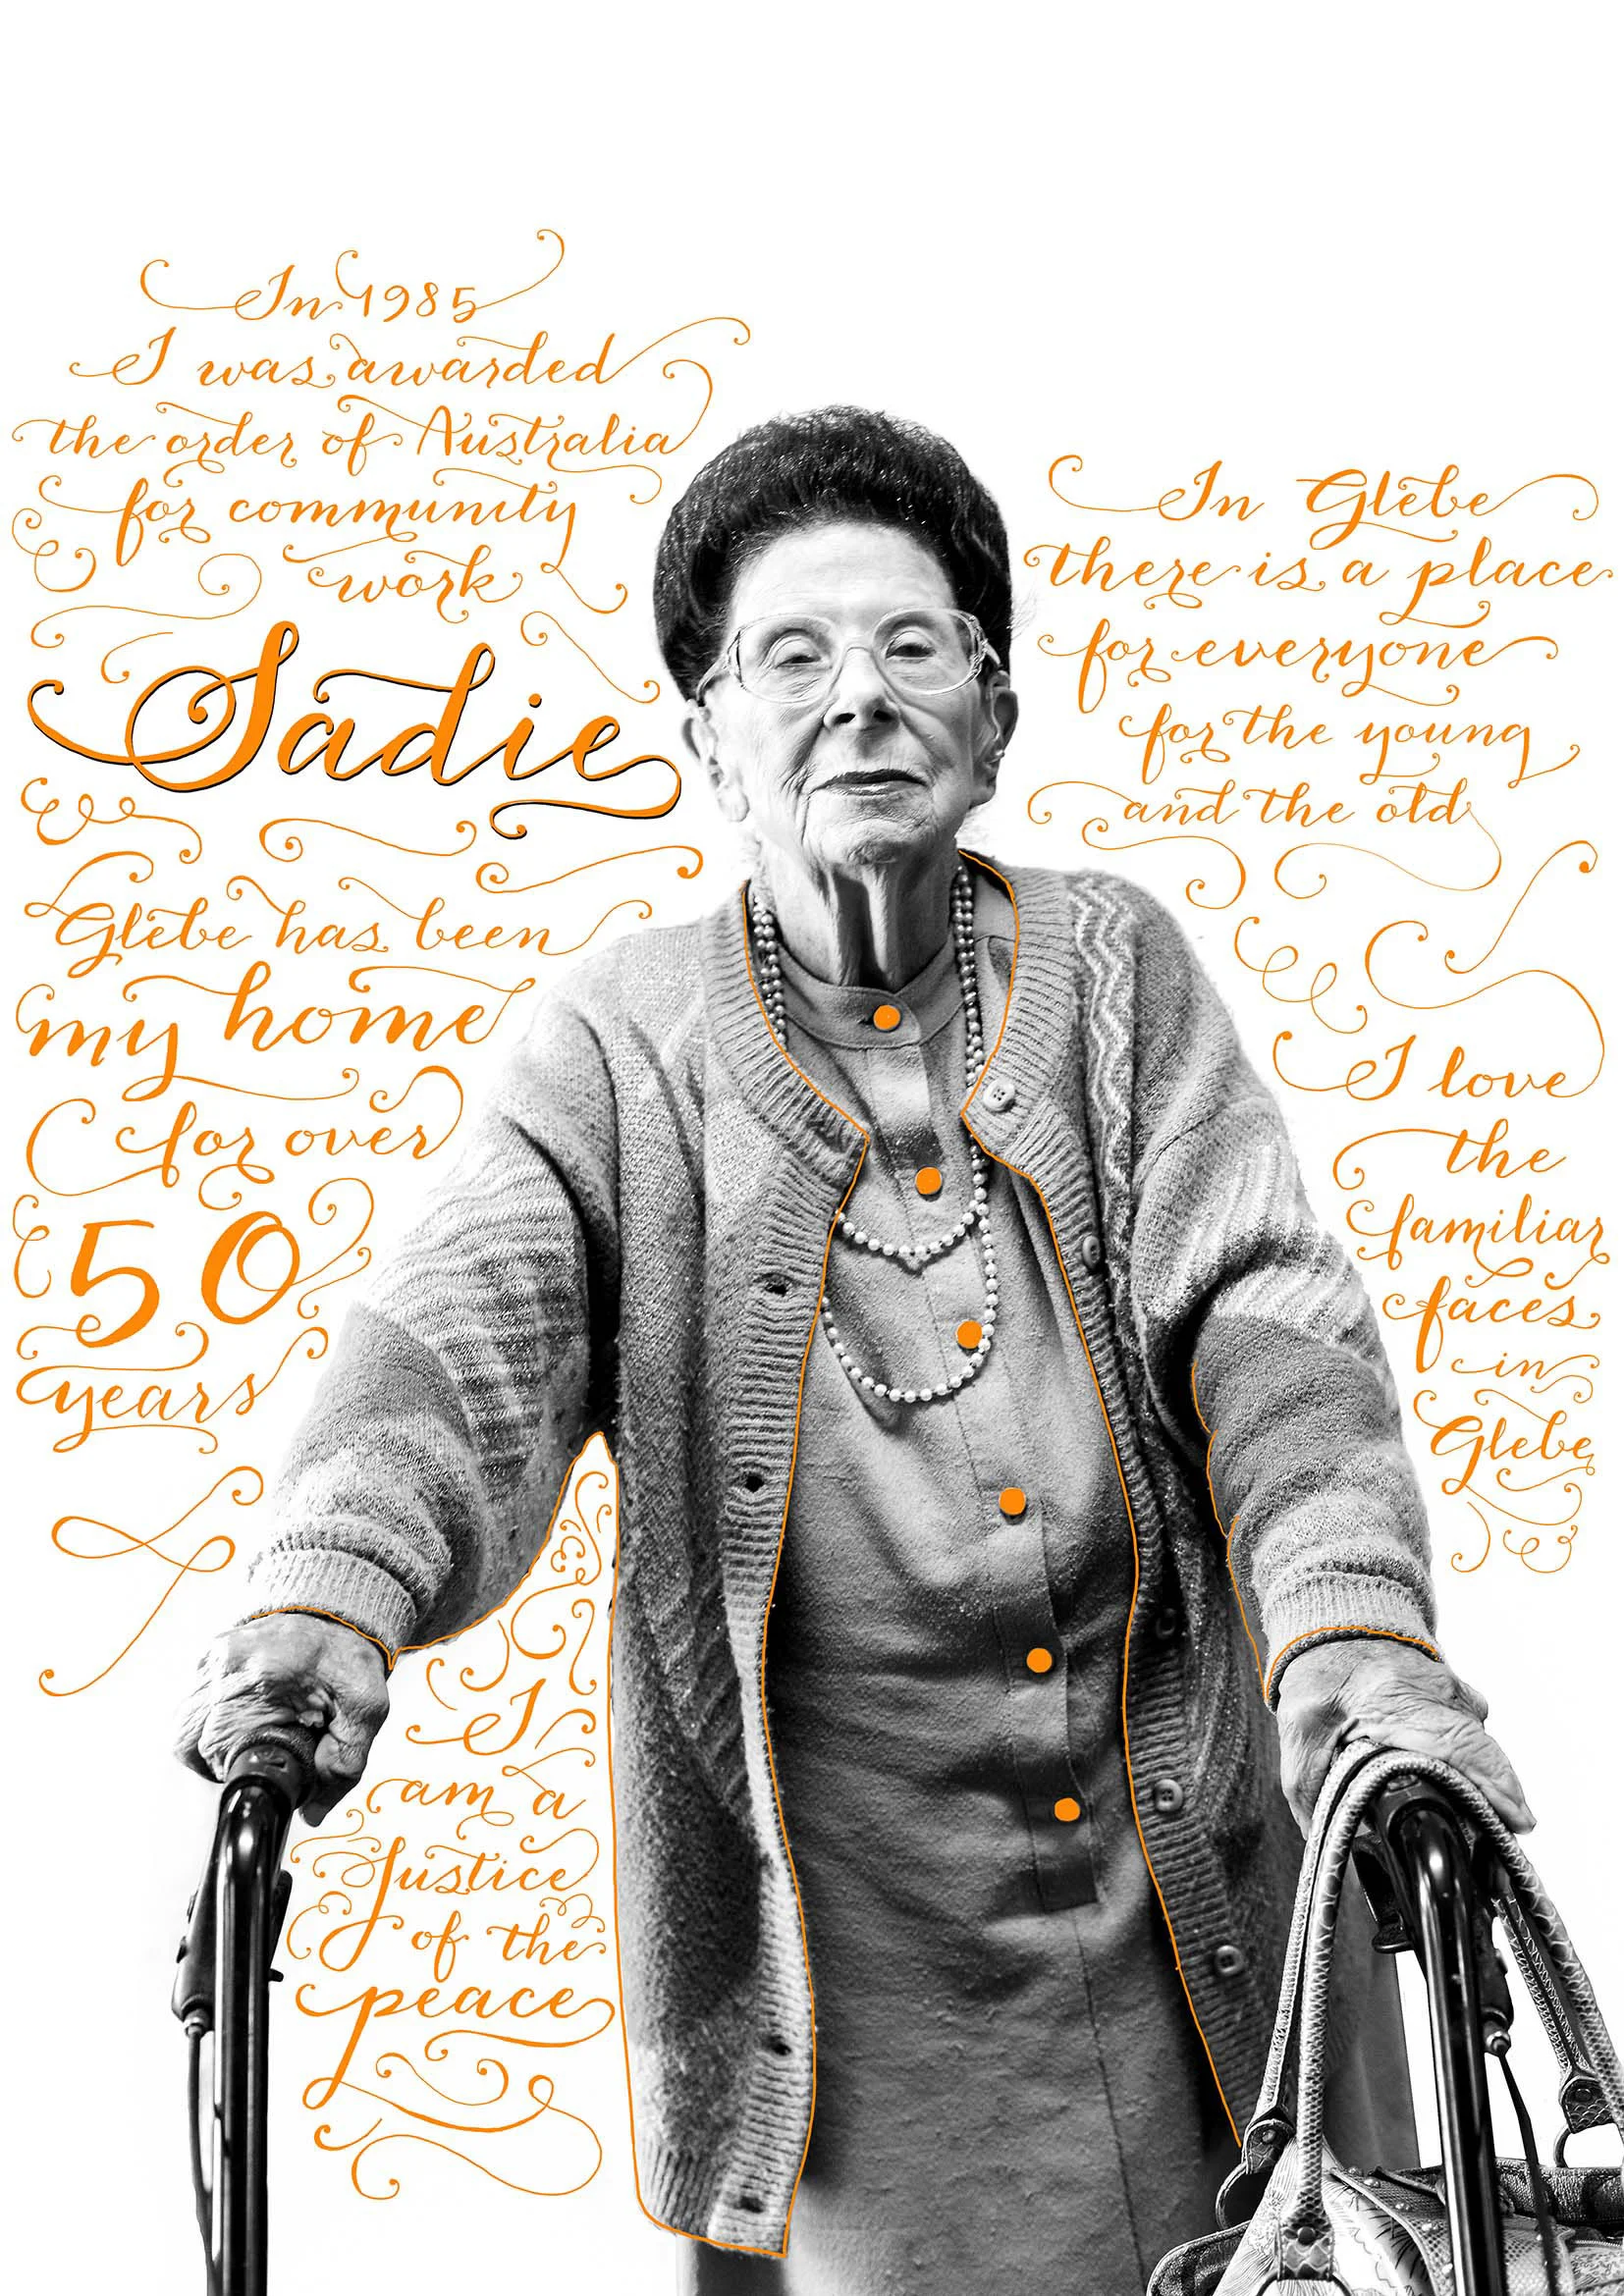 In 1985
I was awarded
the order of Australia
for community
work
Sadie
Glebe has been
my home
for over
50
years
I
am a
Justice
of the
peace
In Glebe
there is a place
for everyone
for the young
and the old
I love
the
familiar
faces
in
Glebe